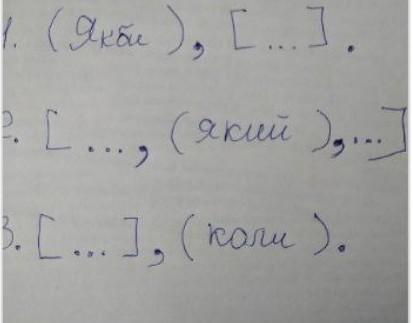 1. (Якби), [...].
2. [..., (який), ...]
3. [...], (коли).